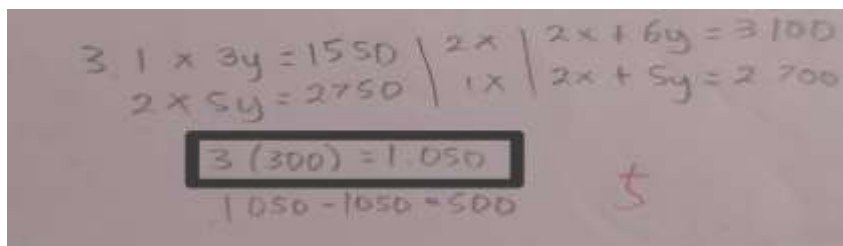 3 1 x 3y = 1550 | 2x | 2x + 6y = 3100
2 x 5y = 2750 | 1x | 2x + 5y = 2 700
3 (300) = 1.050
1050 - 1050 = 500
5